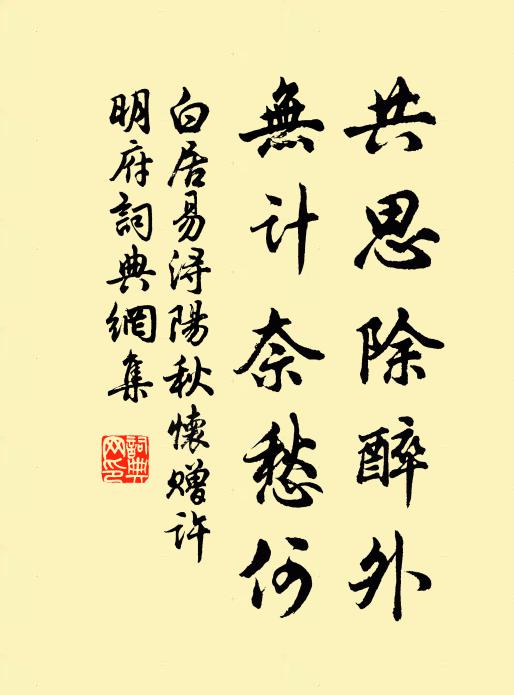 共思除醉外
無计奈愁何
白居易浔陽秋懷赠许
明府詞典網集
詞典网印